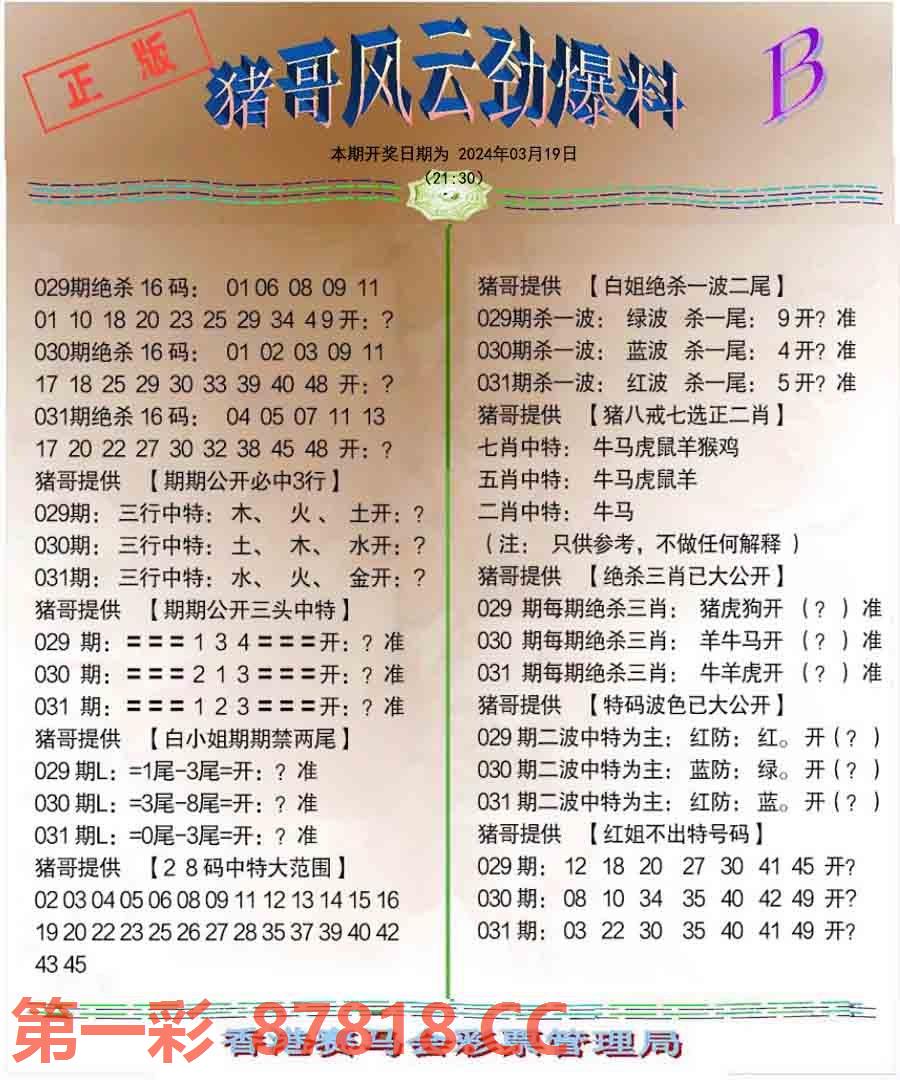 正版
猪哥风云劲爆料
B
本期开奖日期为 2024年03月19日
(21:30)
029期绝杀 16 码： 01 06 08 09 11
01 10 18 20 23 25 29 34 4 9 开：？
030期绝杀 16 码： 01 02 03 09 11
17 18 25 29 30 33 39 40 48 开：？
031期绝杀 16 码： 04 05 07 11 13
17 20 22 27 30 32 38 45 48 开：？
猪哥提供 【期期公开必中3行】
029期： 三行中特： 木、 火 、 土开：？
030期： 三行中特： 土、 木、 水开：？
031期： 三行中特： 水、 火、 金开：？
猪哥提供 【期期公开三头中特】
029 期：＝＝＝ 1 3 4 ＝＝＝开：？ 准
030 期：＝＝＝ 2 1 3 ＝＝＝开：？ 准
031 期：＝＝＝ 1 2 3 ＝＝＝开：？ 准
猪哥提供 【白小姐期期禁两尾】
029 期L：=1尾-3尾=开：？ 准
030 期L：=3尾-8尾=开：？ 准
031 期L：=0尾-3尾=开：？ 准
猪哥提供 【２８码中特大范围】
02 03 04 05 06 08 09 11 12 13 14 15 16
19 20 22 23 25 26 27 28 35 37 39 40 42
43 45
猪哥提供 【白姐绝杀一波二尾】
029期杀一波： 绿波 杀一尾： 9 开？ 准
030期杀一波： 蓝波 杀一尾： 4 开？ 准
031期杀一波： 红波 杀一尾： 5 开？ 准
猪哥提供 【猪八戒七选正二肖】
七肖中特： 牛马虎鼠羊猴鸡
五肖中特： 牛马虎鼠羊
二肖中特： 牛马
（注： 只供参考，不做任何解释 ）
猪哥提供 【绝杀三肖已大公开】
029 期每期绝杀三肖： 猪虎狗开 （？ ）准
030 期每期绝杀三肖： 羊牛马开 （？ ）准
031 期每期绝杀三肖： 牛羊虎开 （？ ）准
猪哥提供 【特码波色已大公开】
029 期二波中特为主：红防：红。 开（？ ）
030 期二波中特为主：蓝防：绿。 开（？ ）
031 期二波中特为主：红防：蓝。 开（？ ）
猪哥提供 【红姐不出特号码】
029 期： 12 18 20 27 30 41 45 开?
030 期： 08 10 34 35 40 42 49 开?
031 期： 03 22 30 35 40 41 49 开?
第一彩 87818.CC
香港赛马会彩票管理局